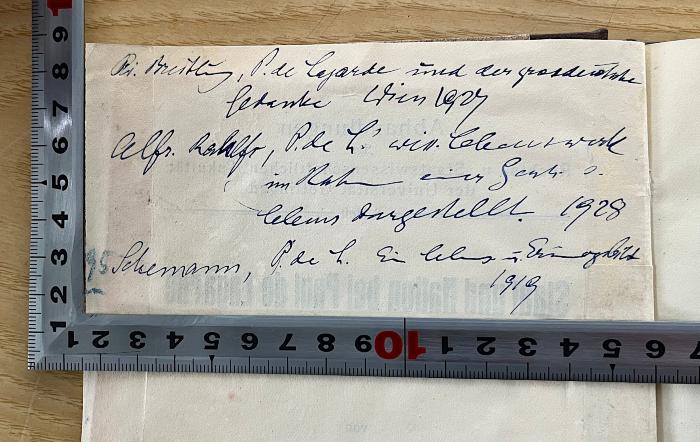 Ri. Breitling, P. de Lagarde und der grossdeutsche
Gedanke Wien 1927
Alfr. Rahlfs, P. de L's wiss. Lebenswerk
im Rahmen einer Gesch. s.
Lebens dargestellt. 1928
95 Schemann, P. de L. Ein Lebens u. Erinnerungsbild
1919
Staat und Nation bei Paul de Lagarde
1 2 3 4 5 6 7 8 9 10
1 2 3 4 5 6 7 8 9 10 1 2 3 4 5 6 7